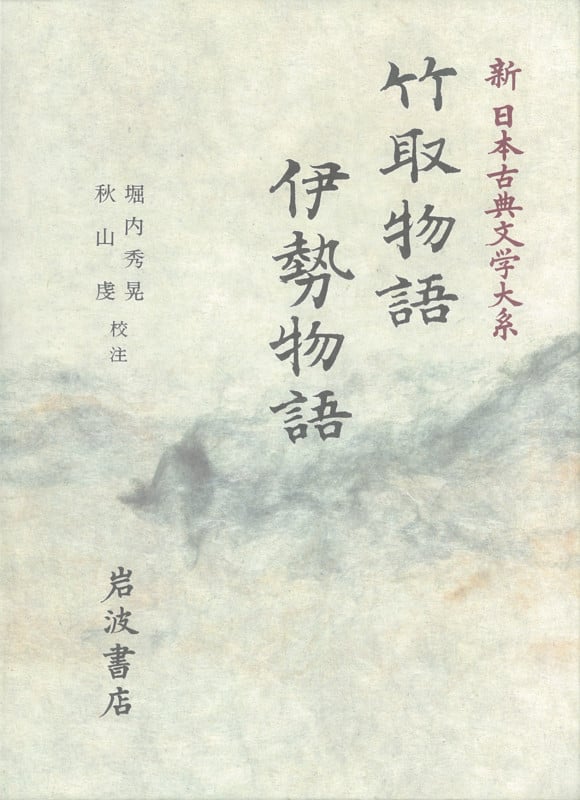 新 日本古典文学大系
竹取物語
伊勢物語
堀内秀晃
秋山虔
校注
岩波書店